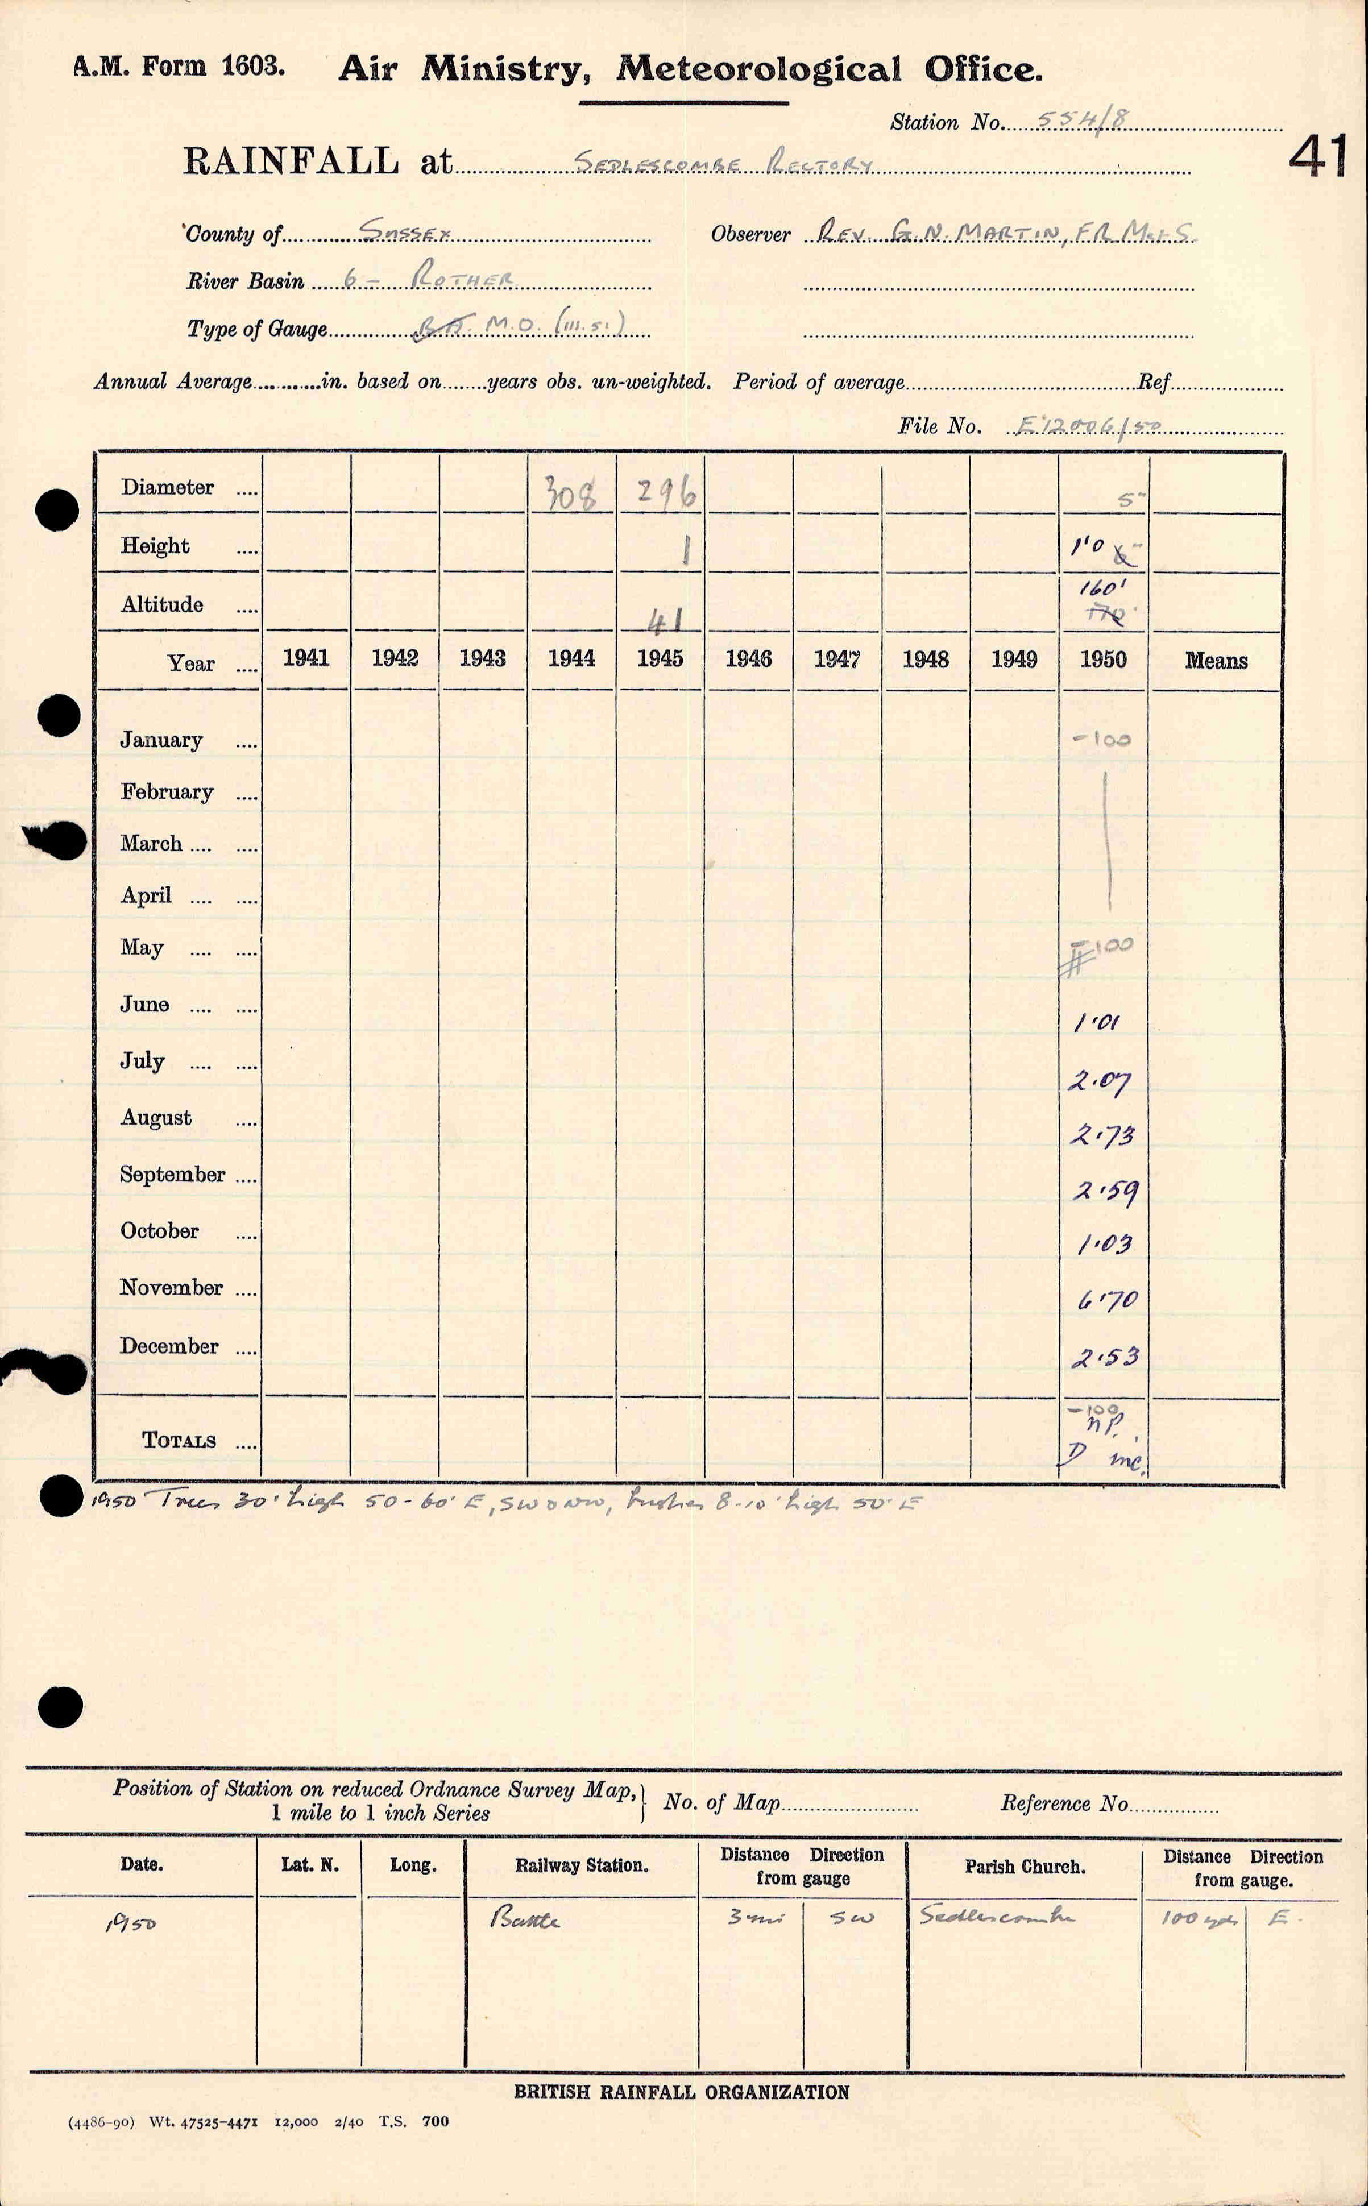 A.M. Form 1603. Air Ministry, Meteorological Office.
Station No. 554/8
41
RAINFALL at SEDLESCOMBE RECTORY
County of SUSSEX Observer REV. G.N. MARTIN, F.R.Met.S.
River Basin 6 - ROTHER
Type of Gauge B.A. M.O. (III.51)
Annual Average in. based on years obs. un-weighted. Period of average Ref.
File No. E12006/50
Diameter 308 296 5"
Height 1 1'0
Altitude 41 160' 170'
Year 1941 1942 1943 1944 1945 1946 1947 1948 1949 1950 Means
January -100
February
March
April
May -100
June 1.01
July 2.07
August 2.73
September 2.59
October 1.03
November 6.70
December 2.53
-100
TOTALS NP.
D inc.
1950 Trees 30' high 50-60' E, SW & NW, bushes 8-10' high 50' E
Position of Station on reduced Ordnance Survey Map, 1 mile to 1 inch Series No. of Map Reference No.
Date. Lat. N. Long. Railway Station. Distance Direction from gauge Parish Church. Distance Direction from gauge.
1950 Battle 3 mi SW Sedlescombe 100 yds E.
BRITISH RAINFALL ORGANIZATION
(4486-90) Wt. 47525-4471 12,000 2/40 T.S. 700